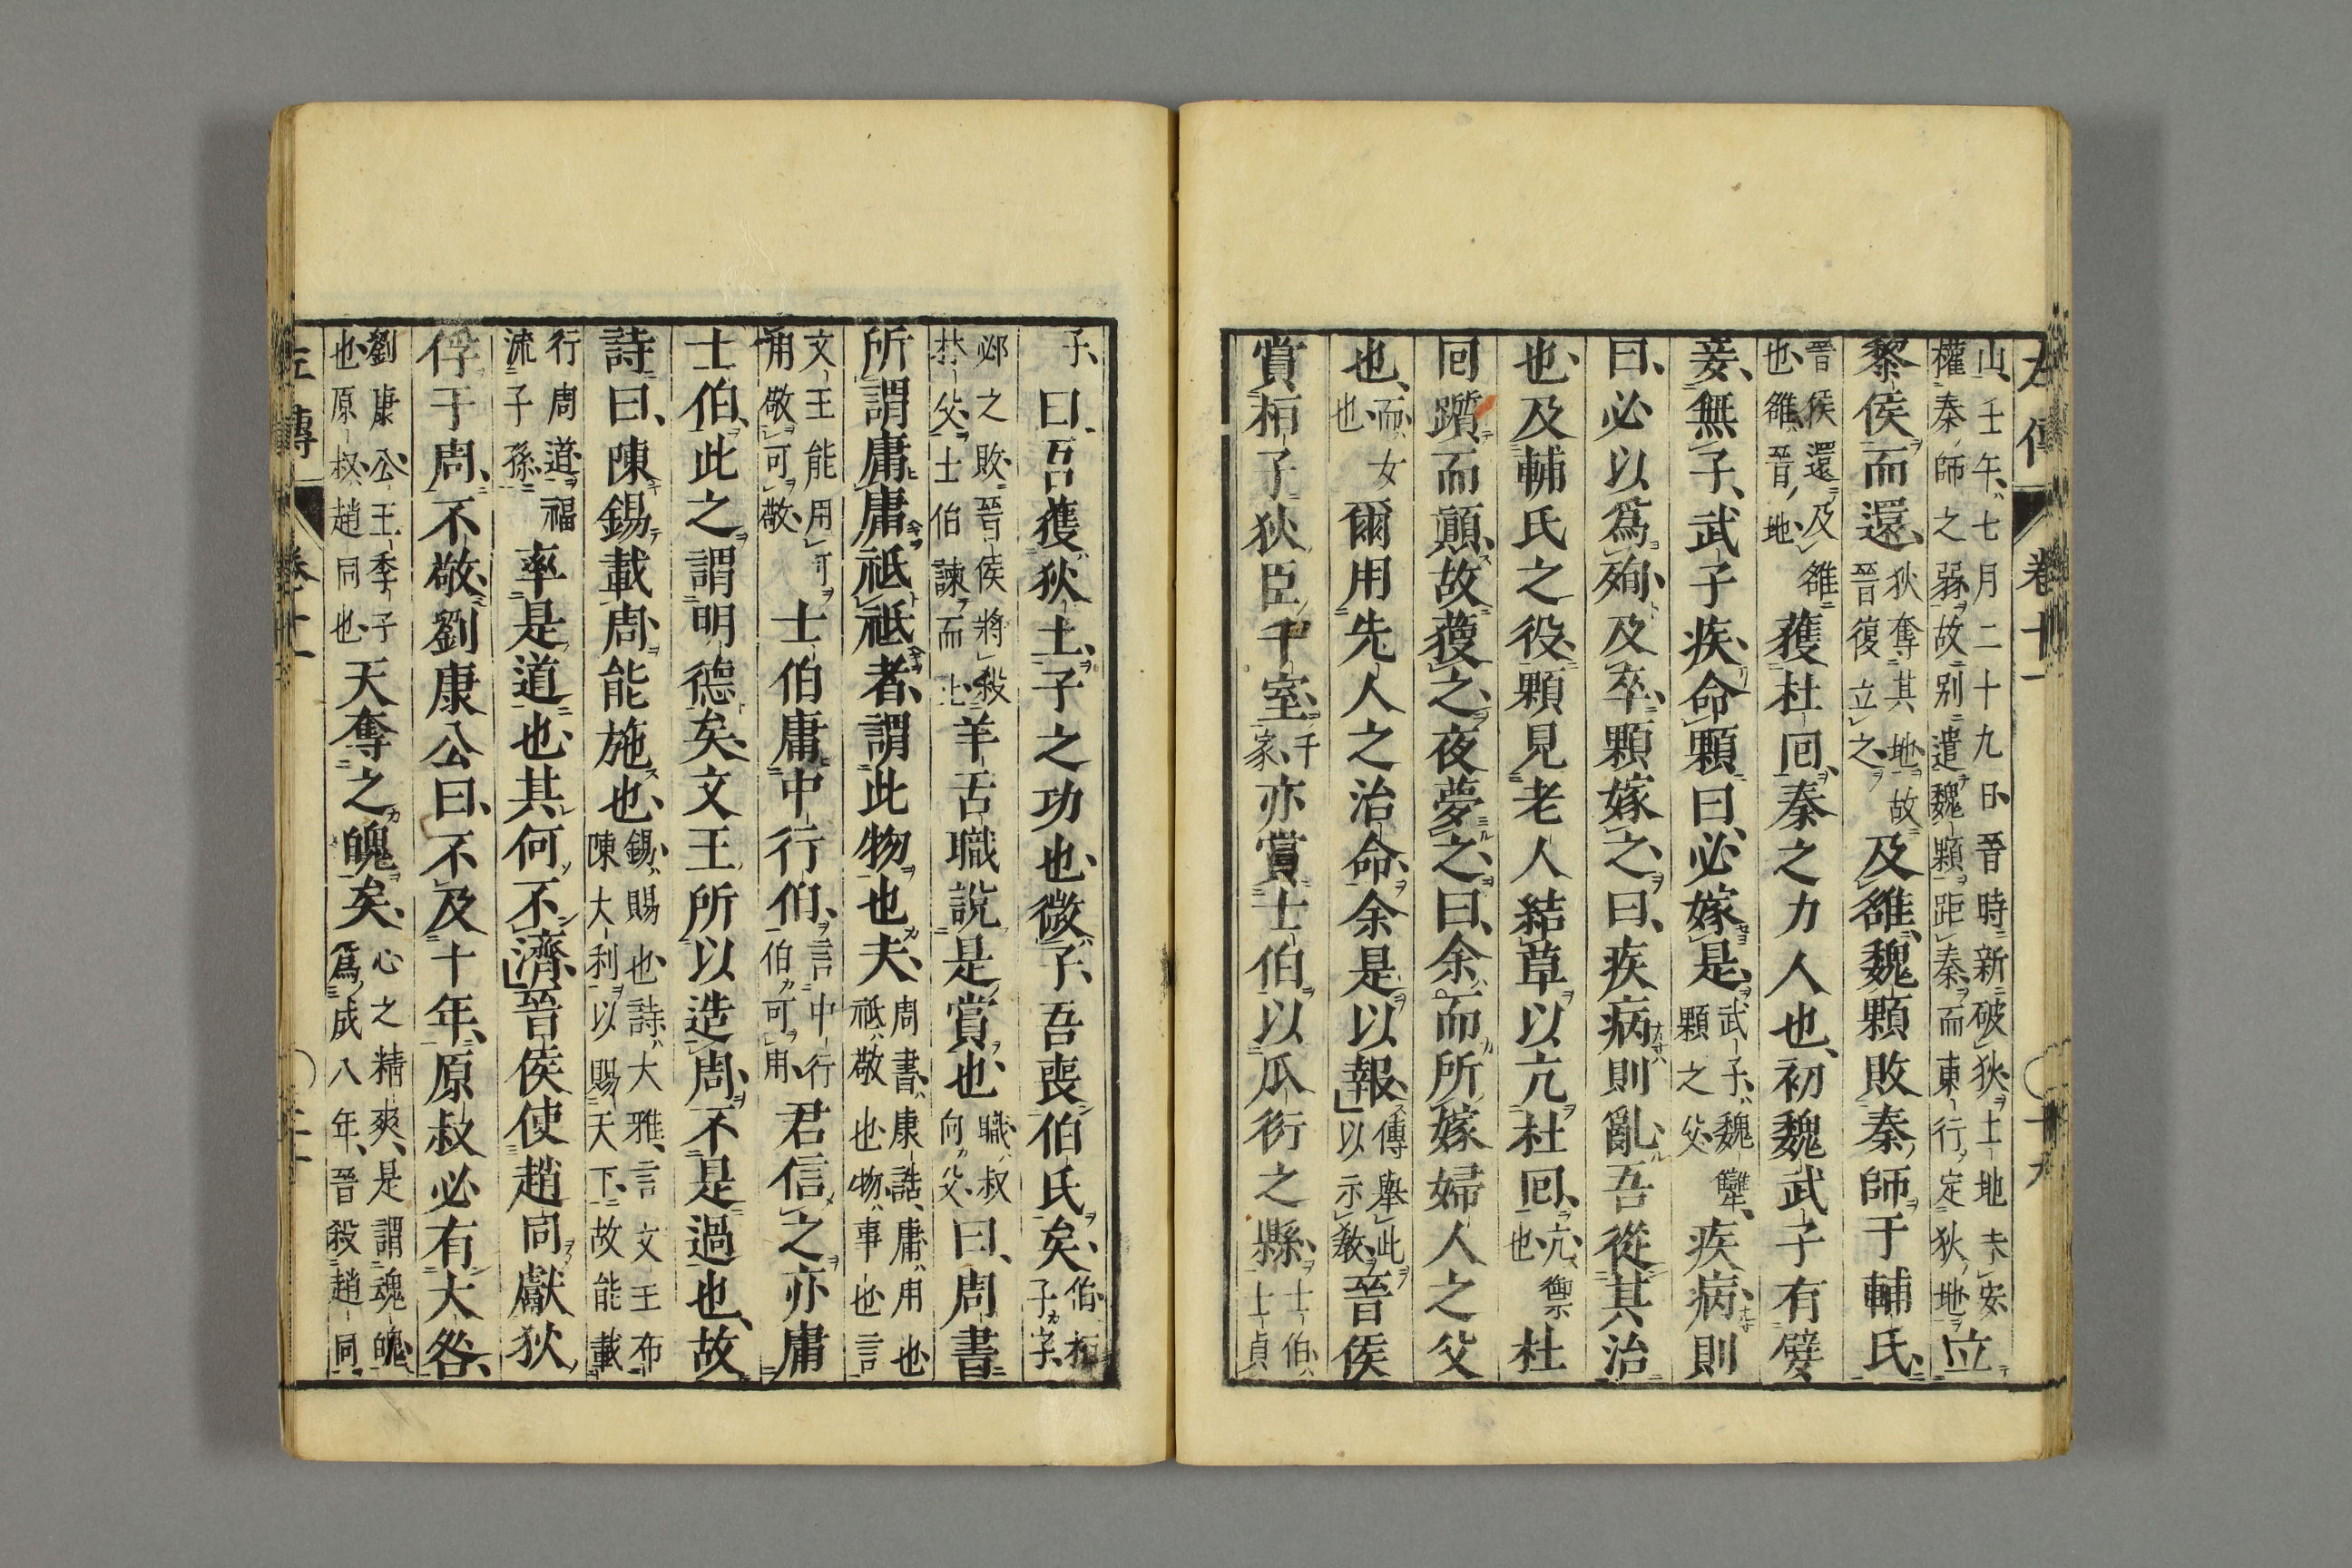 左傳 卷十一 十九
山壬午七月二十九日晉時新破狄土地未安
權秦師之弱故別遣魏顆距秦而東行定狄地立
黎侯而還狄奪其地故晉復立之及雒魏顆敗秦師于輔氏
晉侯還及雒也雒晉地獲杜回秦之力人也初魏武子有嬖
妾無子武子疾命顆曰必嫁是武子魏犨顆之父疾病則
曰必以爲殉及卒顆嫁之曰疾病則亂吾從其治
也及輔氏之役顆見老人結草以亢杜回亢禦也杜
回躓而顛故獲之夜夢之曰余而所嫁婦人之父
也而女也爾用先人之治命余是以報傳舉此以示教晉侯
賞桓子狄臣千室千家亦賞士伯以瓜衍之縣士伯士貞
子曰吾獲狄土子之功也微子吾喪伯氏矣伯桓子字
邲之敗晉侯將殺林父士伯諫而止羊舌職說是賞也職叔向父曰周書
所謂庸庸祗祗者謂此物也夫周書康誥庸用也祗敬也物事也言
文王能用可用敬可敬士伯庸中行伯言中行伯可用君信之亦庸
士伯此之謂明德矣文王所以造周不是過也故
詩曰陳錫載周能施也錫賜也詩大雅言文王布陳大利以賜天下故能載
行周道福流子孫率是道也其何不濟晉侯使趙同獻狄
俘于周不敬劉康公曰不及十年原叔必有大咎
劉康公王季子也原叔趙同也天奪之魄矣心之精爽是謂魂魄爲成八年晉殺趙同
左傳 卷十一